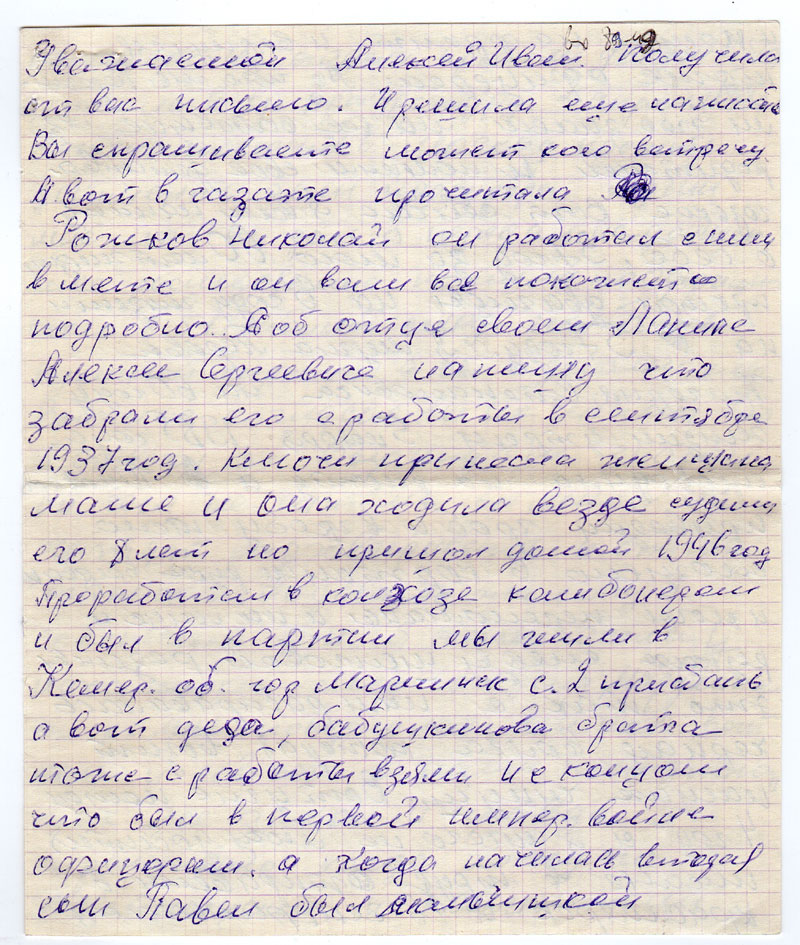 Уважаемой Алексей Иван. Получила
от вас письмо. И решила еще написать
Вы спрашиваете может кого встречу
А вот в газате прочитала
Рожков Николай он работал с ним
в месте и он вам все
подробно. А об отце своем Ланине
Алексее Сергеевиче напишу что
забрали его с работы в сентябре
1937 год. Ключи принесла женщина
маме и она ходила везде судили
его 8 лет но пришол домой 1946 год
Проработал в колхозе комбонером
и был в партии мы жили в
Кемер. об. гор Мариинск с. 2 пристань
а вот деда, бабушкинова брата
тоже с работы взяли и с концом
что был в первой импер. войне
офицерам. а когда началась вторая
сын Павел был мальчишкой